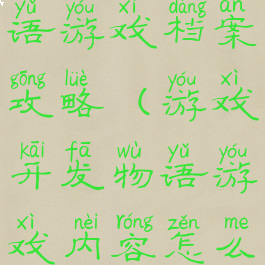 yǔ yóu xì dàng àn
语游戏档案
gōng lüè yóu xì
攻略（游戏
kāi fā wù yǔ yóu
开发物语游
xì nèi róng zěn me
戏内容怎么